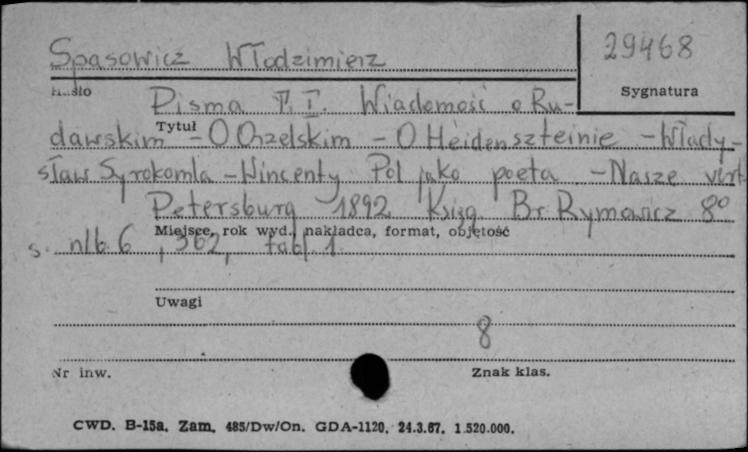 Spasowicz Włodzimierz
29468
Hasło
Sygnatura
Pisma T. I. Wiadomość o Ru-
Tytuł
dawskim - O Orzelskim - O Heidenszteinie - Włady-
sław Syrokomla - Wincenty Pol jako poeta - Nasze
Petersburg 1892 Księg. Br. Rymowicz 8°
Miejsce, rok wyd., nakładca, format, objętość
s. nlb. 6, 362, tabl. 1.
Uwagi
8
Nr inw.
Znak klas.
CWD. B-15a. Zam. 485/Dw/On. GDA-1120. 24.3.67. 1.520.000.